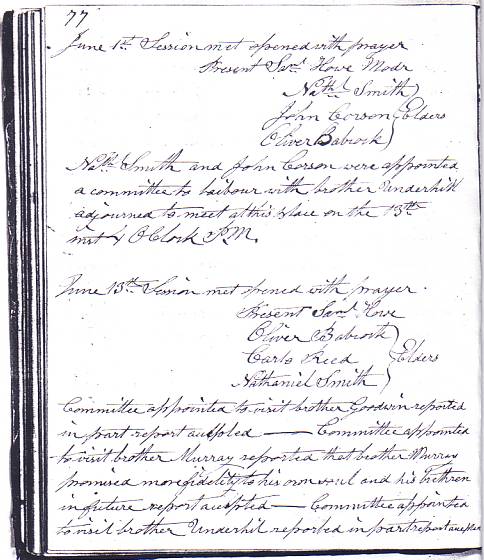 77
June 1st Session met opened with prayer
Present Saml Howe Modr
Nathl Smith
John Corson Elders
Oliver Babcock
Nathl Smith and John Corson were appointed
a committee to labour with brother Underhill
adjourned to meet at this place on the 13th
inst 4 OClock P.M.
June 13th Session met opened with prayer.
Present Saml Howe
Oliver Babcock
Reed Elders
Nathaniel Smith
Committee appointed to visit brother Goodwin reported
in part report accepted — Committee appointed
to visit brother Murray reported that brother Murray
promised more fidelity to his own soul and his brethren
in future report accepted — Committee appointed
to visit brother Underhil reported in part report accepted